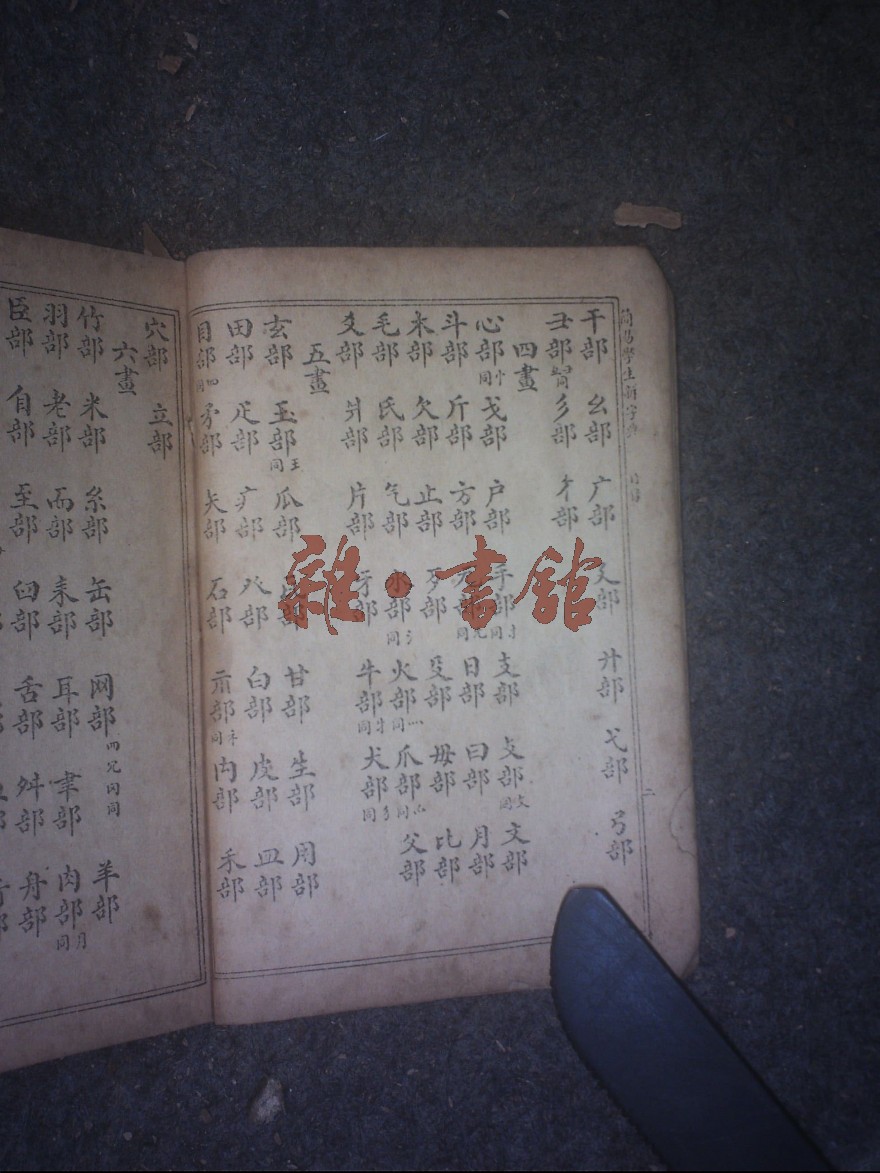 簡易學生新字典 目錄 二
干部 幺部 广部 廴部 廾部 弋部 弓部
彐部 彡部 彳部
四畫
心部 忄同 戈部 户部 手部 扌同 支部 攴部 攵同 文部
斗部 斤部 方部 无部 旡同 日部 曰部 月部
木部 欠部 止部 歹部 殳部 毋部 比部
毛部 氏部 气部 水部 氵同 火部 灬同 爪部 爫同 父部
爻部 爿部 片部 牙部 牛部 牜同 犬部 犭同
五畫
玄部 玉部 王同 瓜部 瓦部 甘部 生部 用部
田部 疋部 疒部 癶部 白部 皮部 皿部
目部 罒同 矛部 矢部 石部 示部 礻同 禸部 禾部
穴部 立部
六畫
竹部 米部 糸部 缶部 网部 羊部
羽部 老部 而部 耒部 耳部 聿部 肉部 月同
臣部 自部 至部 臼部 舌部 舛部 舟部
雜·書館